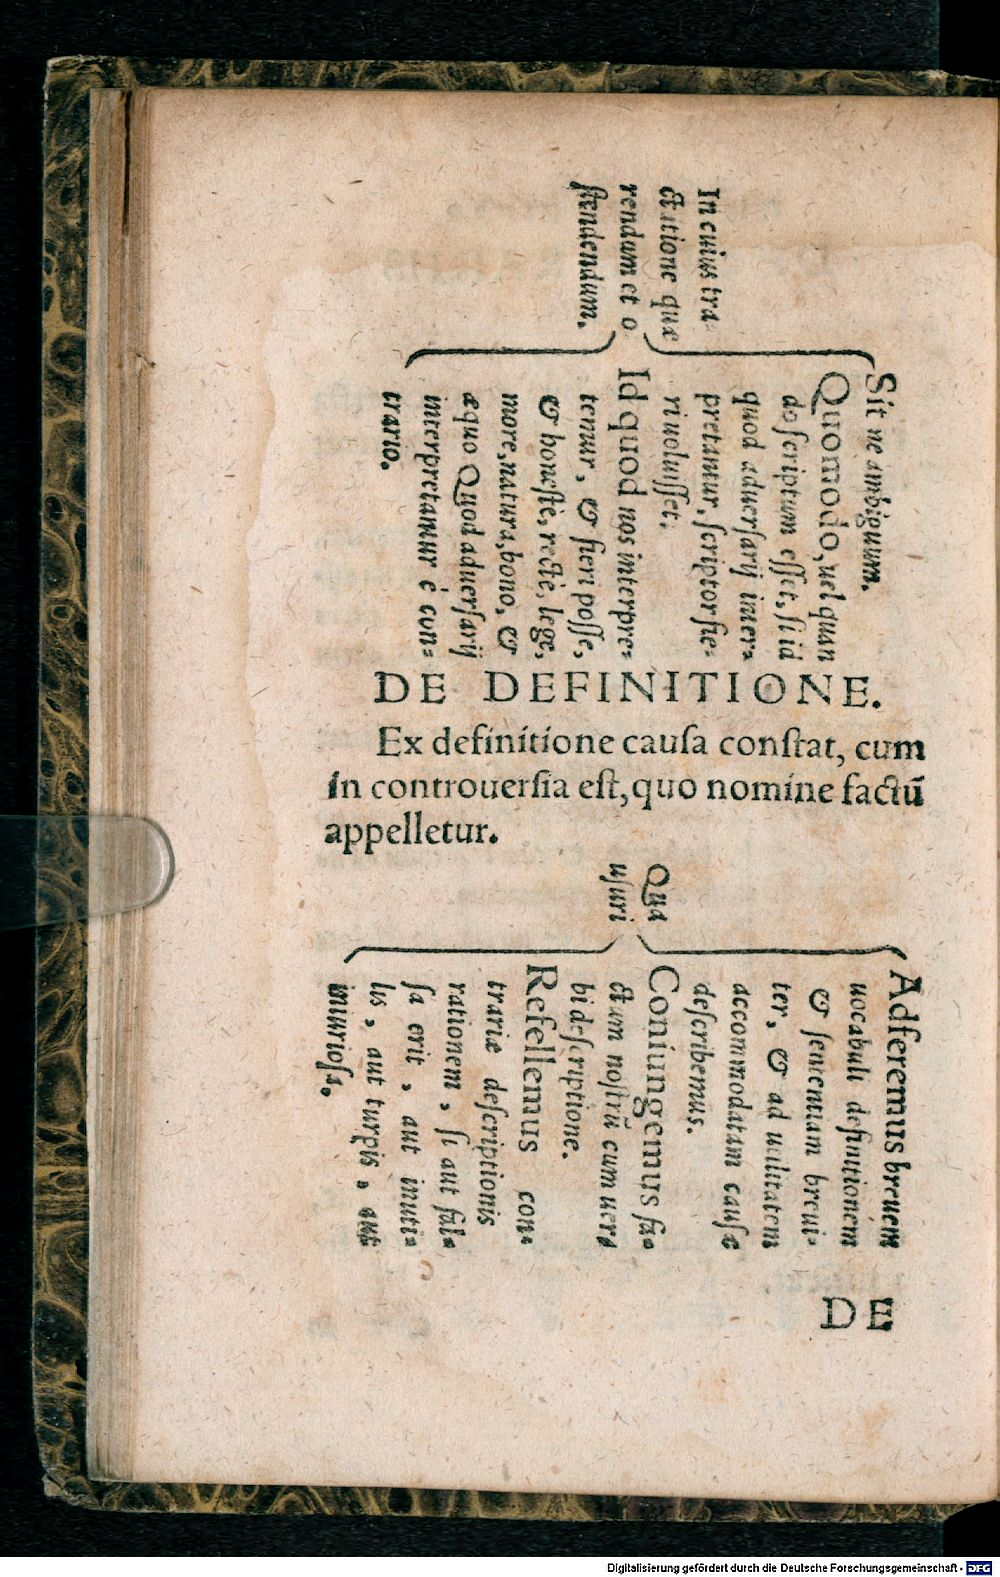 In cuius tra-
ctatione quæ
rendum et o
stendendum.
Sit ne ambiguum.
Quomodo, uel quan
do scriptum esset, si id
quod aduersarij inter-
pretantur, scriptor fie-
ri uoluisset.
Id quod nos interpre-
temur, & fieri posse,
& honestè, rectè, lege,
more, natura, bono, &
æquo Quod aduersarij
interpretamur è con-
trario.
DE DEFINITIONE.
Ex definitione causa constat, cum
in controuersia est, quo nomine factũ
appelletur.
Qua
usuri
Adferemus breuem
uocabuli definitionem
& sententiam breui-
ter, & ad utilitatem
accommodatam causæ
describemus.
Coniungemus fa-
ctum nostrũ cum uer
bi descriptione.
Refellemus con-
trariæ descriptionis
rationem, si aut fal-
sa erit, aut inuti-
lis, aut turpis, aut
iniuriosa.
DE
Digitalisierung gefördert durch die Deutsche Forschungsgemeinschaft - DFG